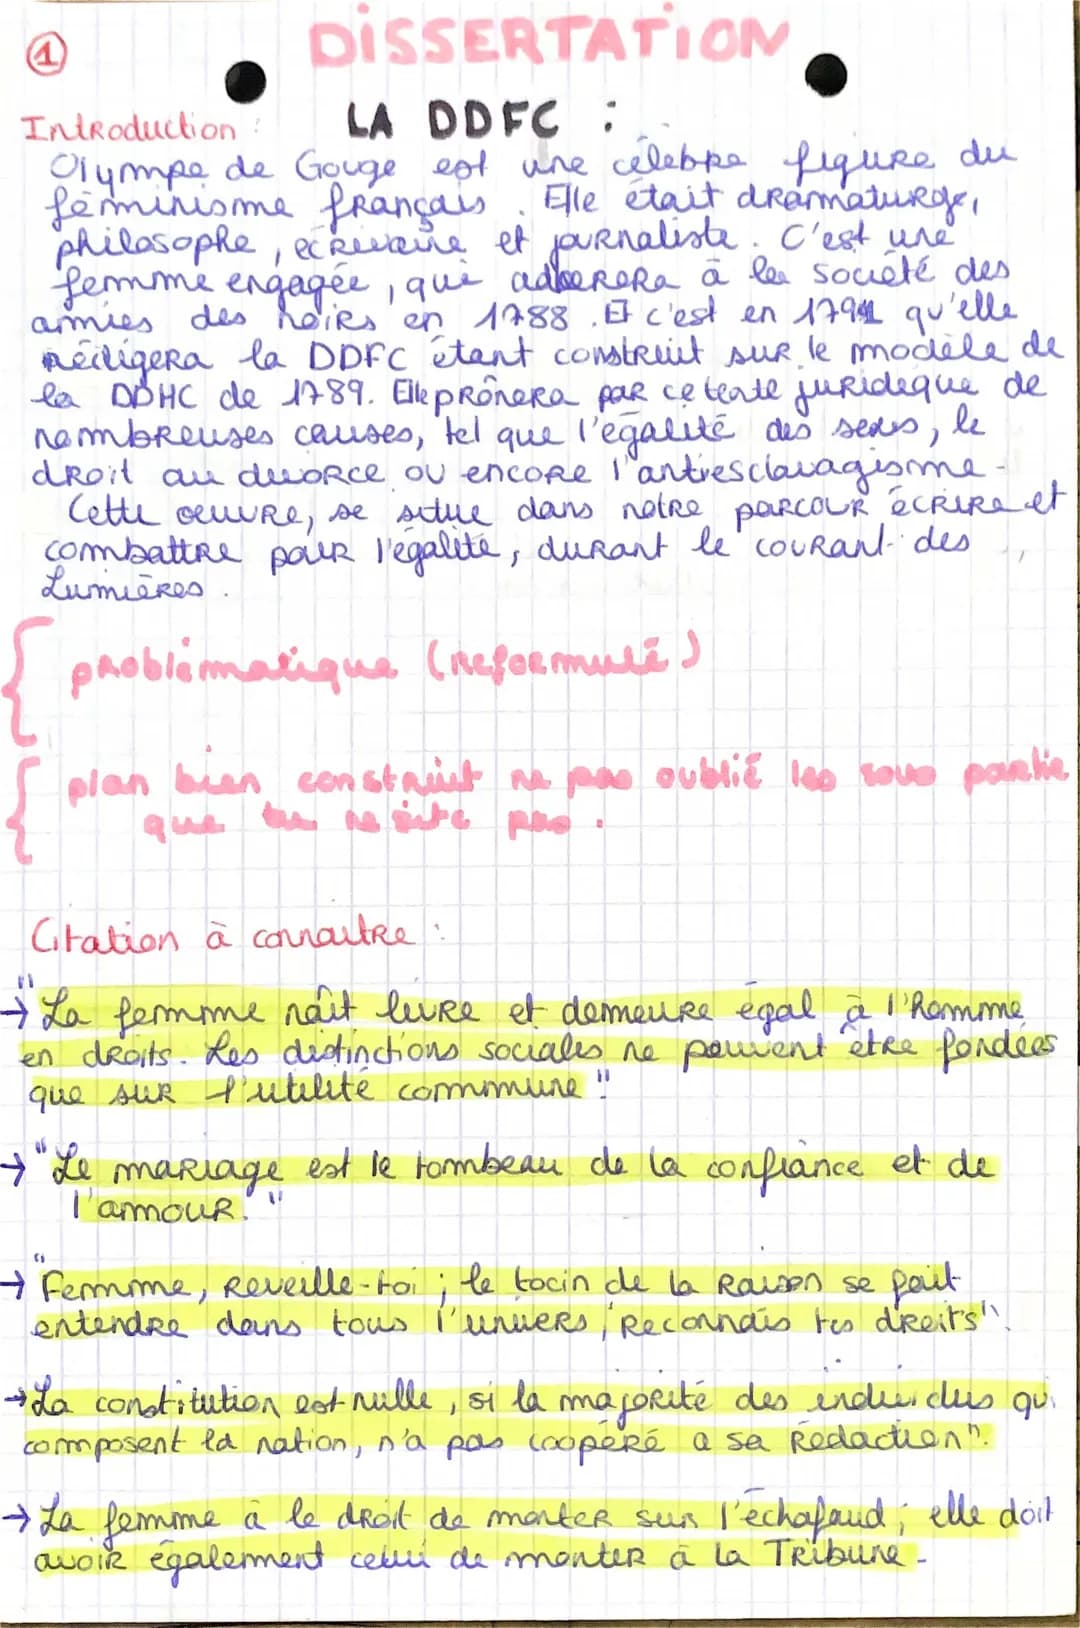 1
DiSSERTATiON
Introduction :
LA DDFC :
Olympe de Gouge est une célèbre figure du
féminisme français. Elle était dramaturge,
philosophe, écrivaine et journaliste. C'est une
femme engagée, qui adherera à la société des
amies des noirs en 1788. Et c'est en 1791 qu'elle
rédigera la DDFC étant construit sur le modèle de
la DDHC de 1789. Elle prônera par ce texte juridique de
nombreuses causes, tel que l'égalité des sexes, le
droit au divorce ou encore l'antiesclavagisme.
Cette œuvre, se situe dans notre parcour écrire et
combattre pour l'égalité, durant le courant des
Lumières.
problèmatique (reformulé)
plan bien construit ne pas oublié les sous partie
que tu ne site pas.
Citation à connaitre :
→ "La femme naît livre et demeure égal à l'Homme
en droits. Les distinctions sociales ne peuvent être fondées
que sur l'utilité commune"
→ "Le mariage est le tombeau de la confiance et de
l'amour."
→ "Femme, reveille-toi ; le tocin de la raison se fait
entendre dans tous l'univers, reconnais tes droits".
→ La constitution est nulle, si la majorité des individus qui
composent la nation, n'a pas coopéré a sa rédaction".
→ La femme à le droit de monter sur l'échafaud ; elle doit
avoir également celui de monter à la Tribune.